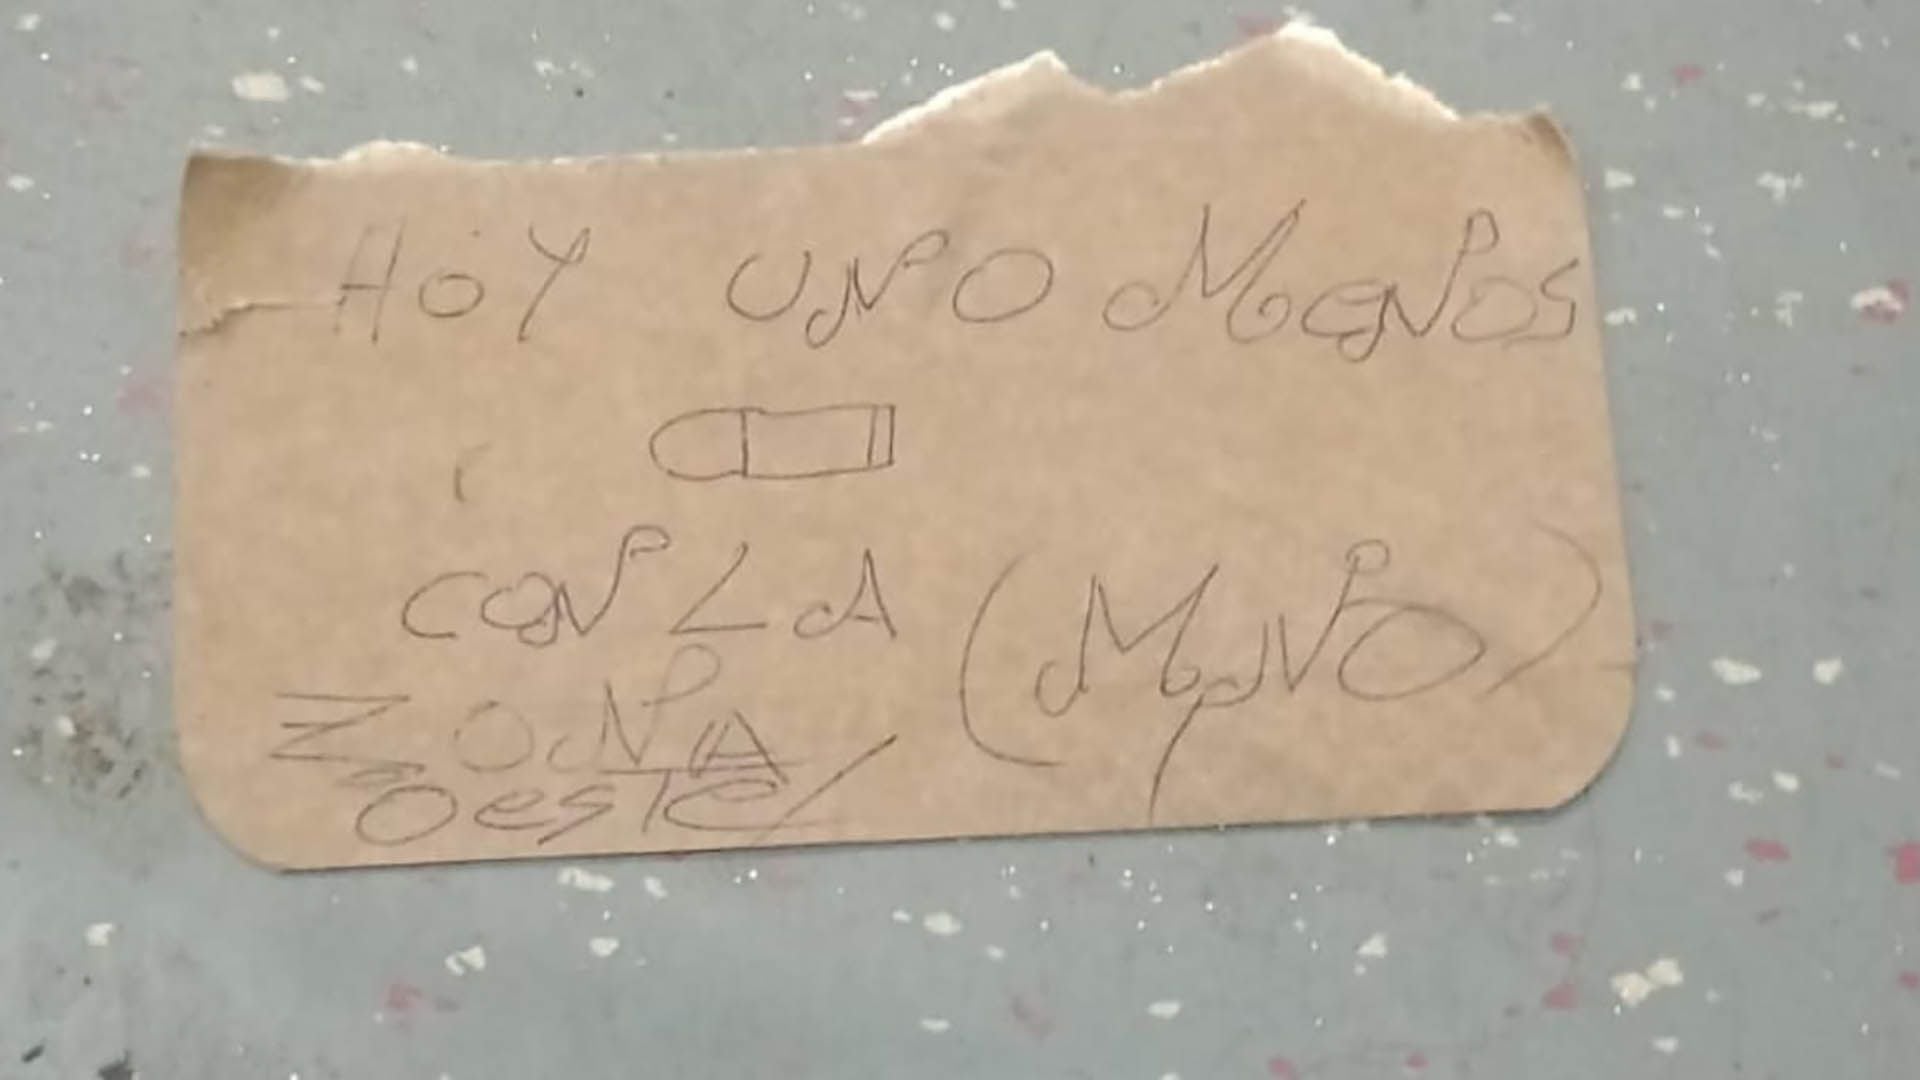 HOY UNO MENOS
CON LA (MNO)
ZONA
OESTE